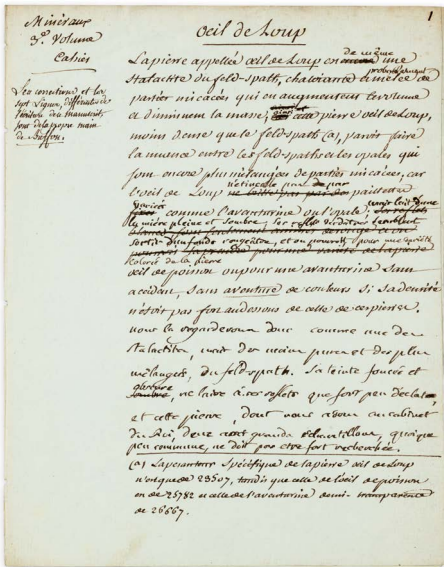 1
Minéraux
3e. Volume
Cahier
Les corrections et les
sept lignes, différentes de
l'écriture du manuscrit,
sont de la propre main
de Buffon.
Œil de Loup
La pierre appellée œil de Loup est de même une
stalactite du feld-spath, chatoiante & mêlée de
parties micacées, qui en augmentent le volume
et diminuent la masse; cette pierre œil de Loup,
moins dense que le feld-spath (a), paroît faire
la nuance entre les feld-spaths et les opales qui
sont encore plus mélangées de parties micacées, car
l'œil de Loup n'étincelle pas par paillettes
variées comme l'aventurine ou l'opale,
lumière pleine et sombre, les reflets verdâtres semblent
sortir d'un fonds rougeâtre, et on pourroit
pour une variété
colorée de la pierre
œil de poisson ou pour une avanturine sans
accident, sans aventure de couleurs si sa densité
n'étoit pas fort au dessous de celle de ces pierres.
nous la regarderons donc comme une des
stalactites, mais des moins pures et des plus
mélangées, du feld-spath. Sa teinte foncée et
obscure, ne laisse à ses reflets que fort peu d'éclat
et cette pierre, dont nous avons au cabinet
du Roi, deux assez grands échantillons, quoique
peu commune, ne doit pas être fort recherchée.
(a) La pesanteur Spécifique de la pierre œil de Loup
n'est que de 23507, tandis que celle de l'œil de poisson
est de 25782 et celle de l'aventurine demi-transparente
de 26667.